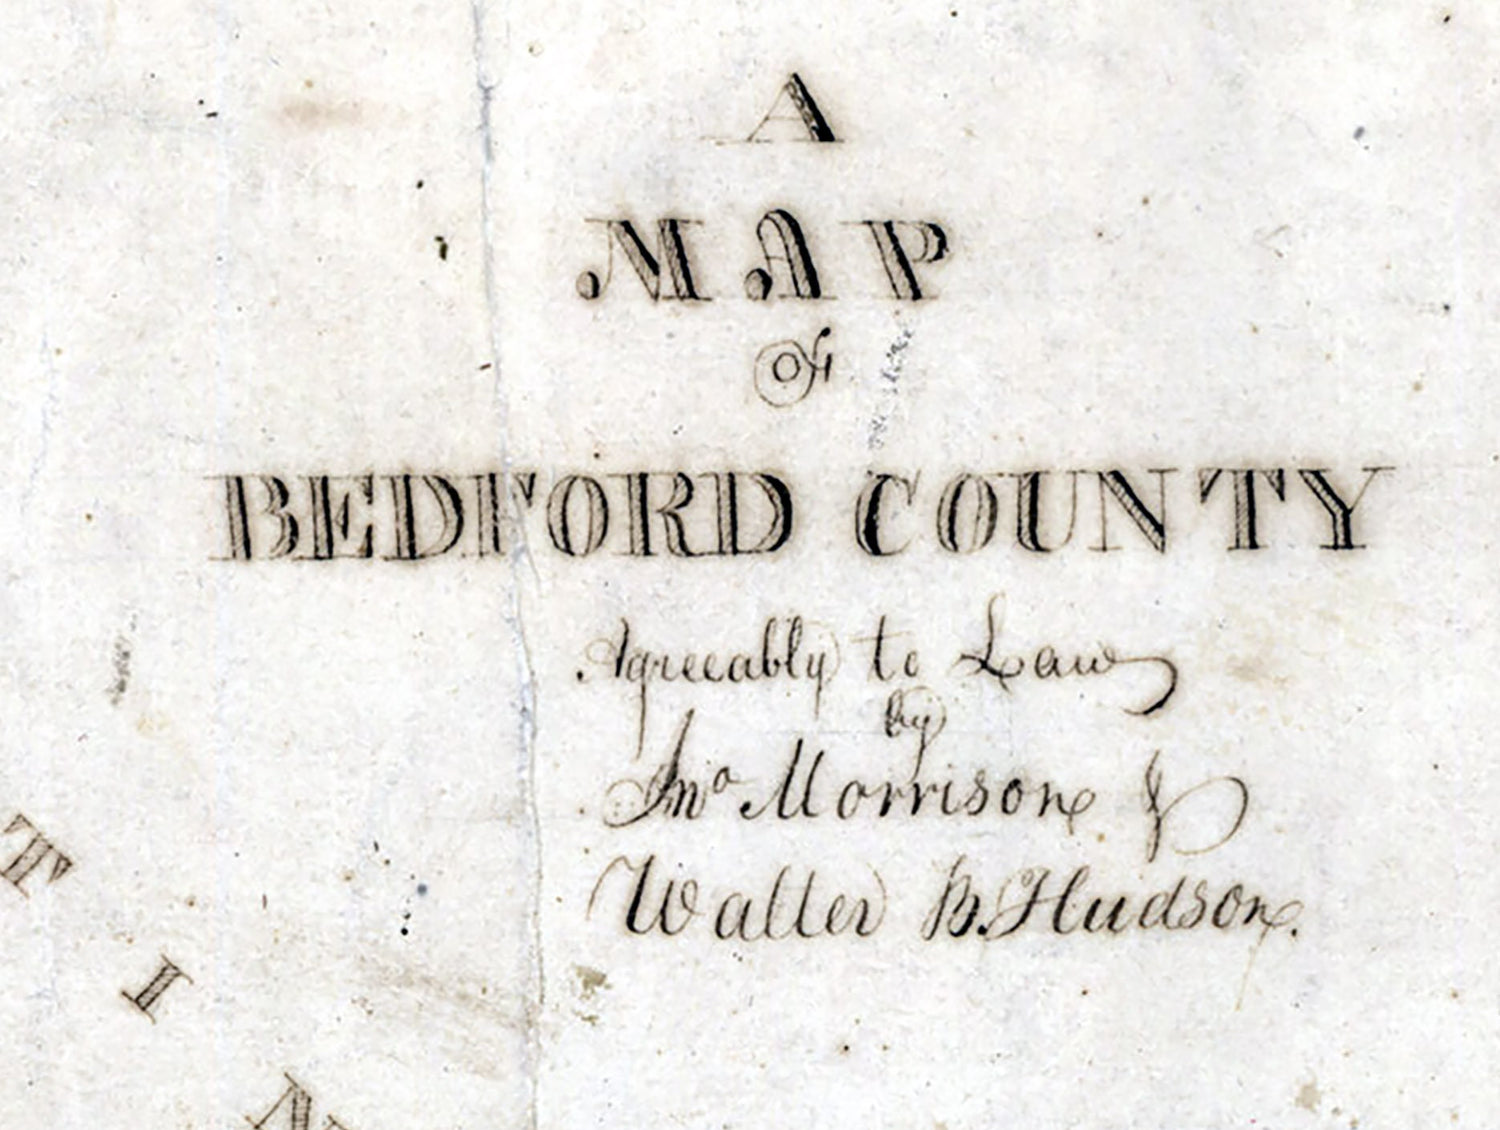 A
MAP
of
BEDFORD COUNTY
Agreeably to Law
by
Jnº Morrison &
Walter B. Hudson.
T
I
N